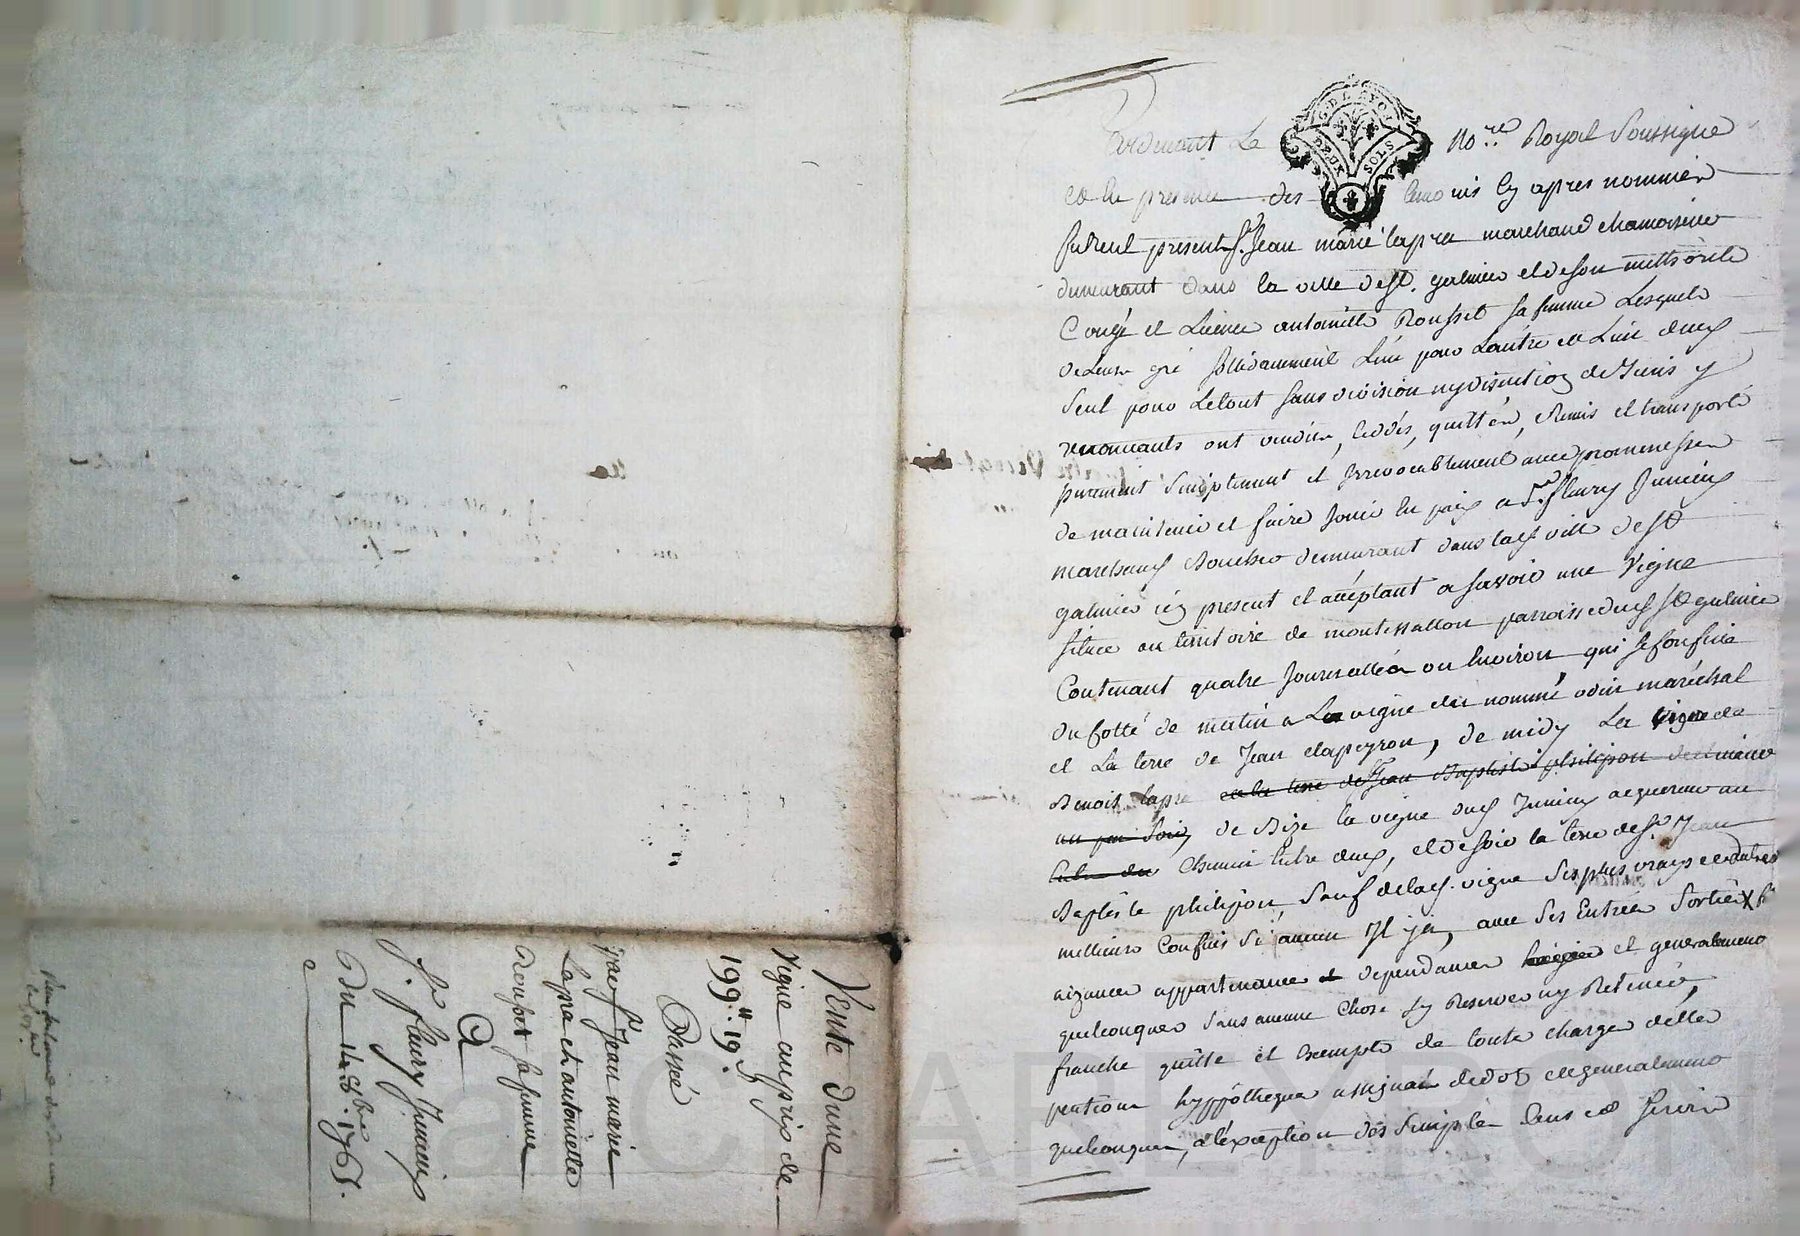 Pardevant Le No.re Royal Soussigné
et En presence des temoins Cy apres nommés
fut present Sr. Jean marie lapra marchand chamoiseur
demeurant dans la ville de St. galmier et de Son
Congé et Licence antoinette Rousset sa femme Lesquels
de Leur gré sollidairement L'un pour L'autre et L'un d'eux
Seul pour Le tout sans division ny discution de Tiers y
renonçants ont vendu, Ceddés, quitté, Remis et transporté
purement Simplement et Irrevocablement avec promesse
de maintenir et faire Jouir En paix a Sr. fleury Junieux
marchand Boucher demeurant dans lad. ville de St
galmier icy present et acceptant a savoir une Vigne
située au territoire de montessallon parroisse dud. St galmier
Contenant quatre Journallée ou Environ qui se Confine
du Cotté de matin a La vigne du nommé odin maréchal
et La terre de Jean clapeyron, de midy La vigne de
Benoit lapra et la terre de Sr Jean Baptiste philipon
un peu Soir, de Bize la vigne dud. Junieux acquereur un
chemin Entre deux, et de soir la terre de Sr. Jean
Baptiste philipon, Sauf de lad. vigne Ses plus vrays et
meilleurs Confins Si aucun Il y a, avec Ses Entrées Sorties
aizances appartenances et dependances et generalement
quelconques sans aucune Chose Sy Reserver ny Retenir,
franche quitte et Exempte de toute charge dette
pention hyppotheque et generalement
quelconque, a l'Exception des Simple Cens et Servis
Vente d'une
Vigne au prix de
199.ll 19 s
Passée
par Sr Jean marie
Lapra et antoinette
Rousset sa femme
A
Sr. fleury Junieux
Du 14 8bre 1765.
G. DE LYON
DEUX SOLS
CHAREYRON